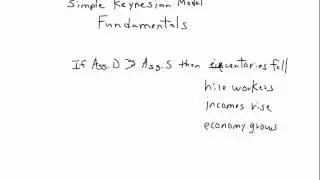 Simple Keynesian Model
Fundamentals
If Agg.D > Agg.S then inventories fall
hire workers
incomes rise
economy grows